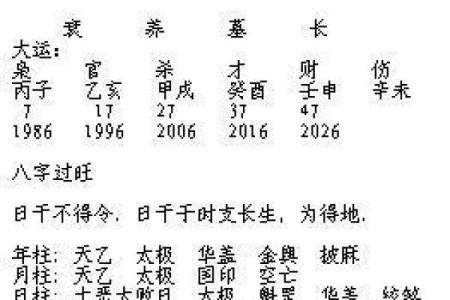 衰 养 墓 长
大运：
枭 官 杀 才 财 伤
丙子 乙亥 甲戌 癸酉 壬申 辛未
7 17 27 37 47
1986 1996 2006 2016 2026
八字过旺
日干不得令．日干于时支长生，为得地．
年柱：天乙 太极 华盖 金舆 披麻
月柱：天乙 太极 国印 空亡
日柱：十恶大败日 太极 魁罡 华盖 绞煞